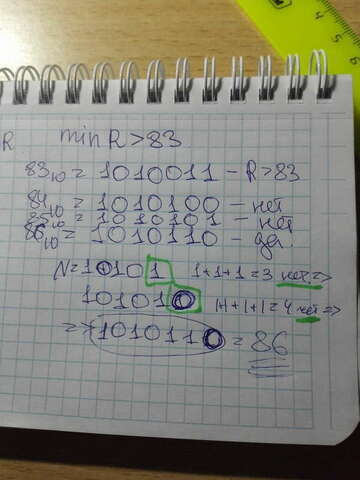 R min R > 83
83₁₀ = 1010011 – R > 83
84₁₀ = 1010100 – нет
85₁₀ = 1010101 – нет
86₁₀ = 1010110 – да.
N = 10101 1+1+1=3 нет =>
101010 1+1+1=4 нет =>
=> 1010110 = 86
4
5
6